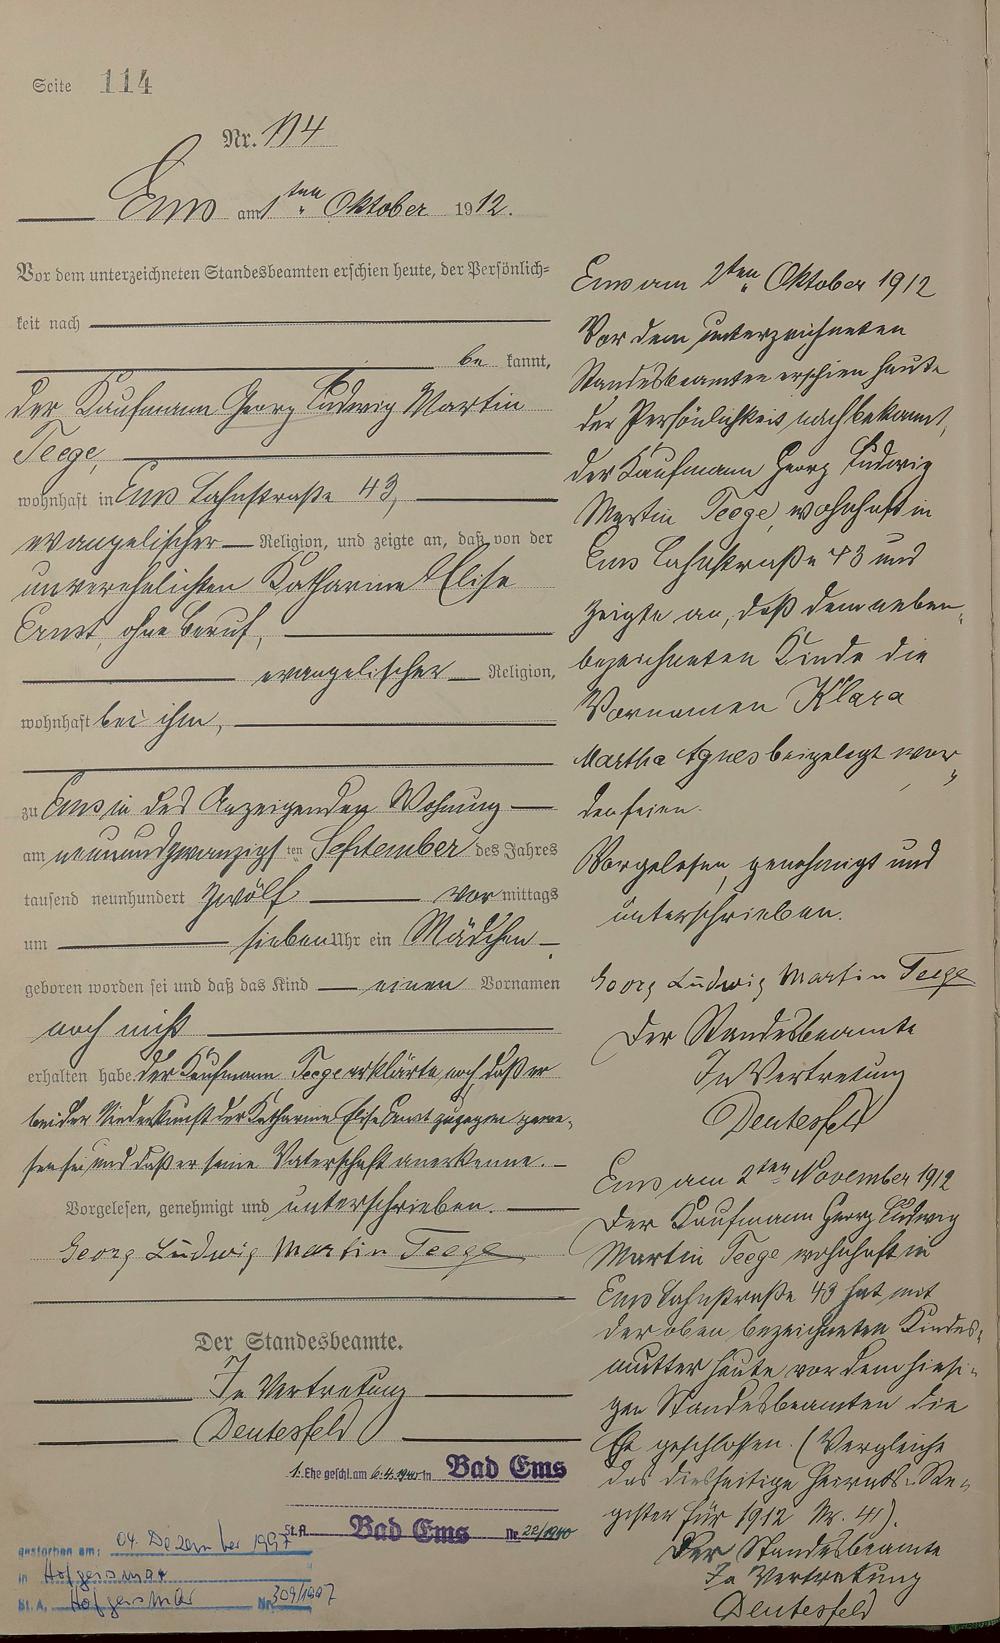 Seite 114
Nr. 114
Ems am 1ten Oktober 1912.
Vor dem unterzeichneten Standesbeamten erschien heute, der Persönlich=
keit nach
be kannt,
der Kaufmann Georg Ludwig Martin
Teege,
wohnhaft in Ems Lahnstraße 43,
evangelischer Religion, und zeigte an, daß von der
unverehelichten Katharine Elise
Ernst, ohne Beruf,
evangelischer Religion,
wohnhaft bei ihm,
zu Ems in des Anzeigenden Wohnung
am neunundzwanzigs ten September des Jahres
tausend neunhundert zwölf vor mittags
um sieben Uhr ein Mädchen
geboren worden sei und daß das Kind einen Vornamen
noch nicht
erhalten habe. Der Kaufmann Teege erklärte noch, daß er
bei der Niederkunft der Katharine Elise Ernst zugegen gewe-
sen sei und daß er seine Vaterschaft anerkenne.
Vorgelesen, genehmigt und unterschrieben.
Georg Ludwig Martin Teege
Der Standesbeamte.
In Vertretung
Deutesfeld
1. Ehe geschl. am 6.4.1940 in Bad Ems
St.A. Bad Ems Nr. 22/1940
gestorben am: 04. Dezember 1997
in Hofgeismar
St. A. Hofgeismar Nr. 309/1997
Ems am 2ten Oktober 1912
Vor dem unterzeichneten
Standesbeamten erschien heute
der Persönlichkeit nach bekannt,
der Kaufmann Georg Ludwig
Martin Teege, wohnhaft in
Ems Lahnstraße 43 und
zeigte an, daß dem neben-
bezeichneten Kinde die
Vornamen Klara
Martha Agnes beigelegt wor-
den seien.
Vorgelesen, genehmigt und
unterschrieben.
Georg Ludwig Martin Teege
Der Standesbeamte
In Vertretung
Deutesfeld
Ems am 2ten November 1912
Der Kaufmann Georg Ludwig
Martin Teege wohnhaft in
Ems Lahnstraße 43 hat mit
der oben bezeichneten Kindes-
mutter heute vor dem hiesi-
gen Standesbeamten die
Ehe geschlossen. (Vergleiche
das diesseitige Heirats-Re-
gister für 1912 Nr. 41).
Der Standesbeamte
In Vertretung
Deutesfeld